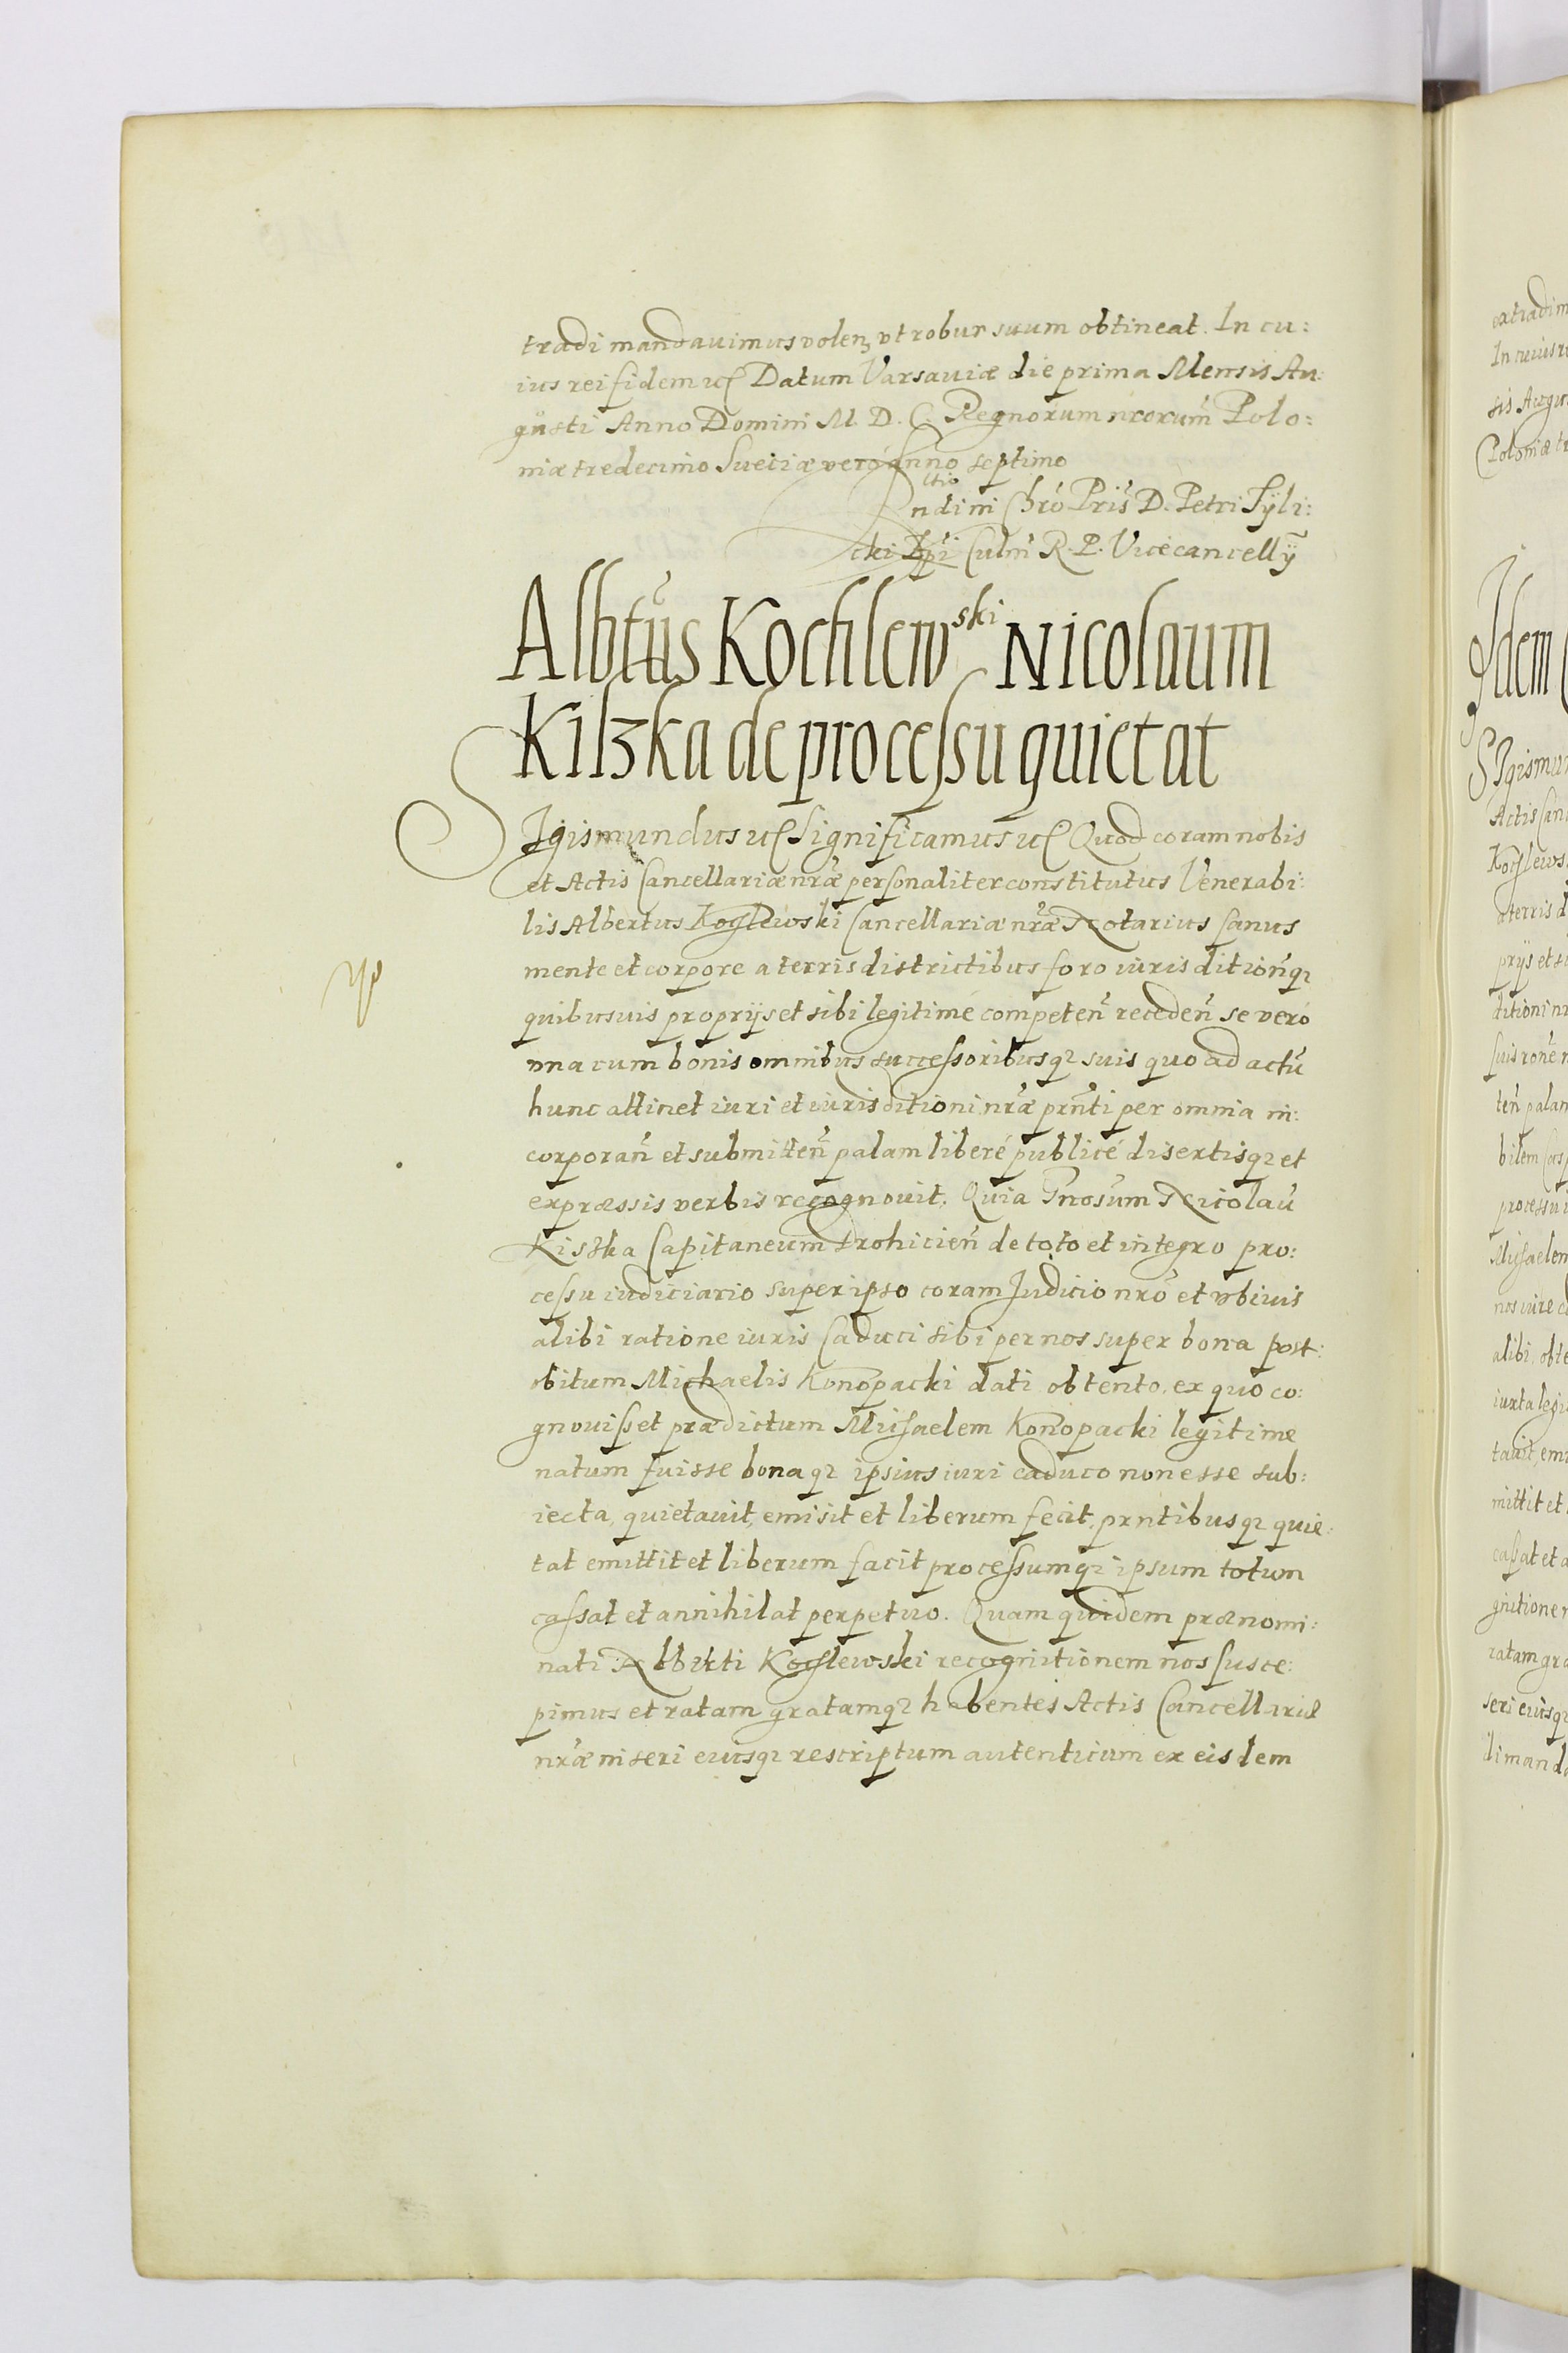 tradi mandauimus volenʒ vt robur suum obtineat. In cu:
ius rei fidem etc Datum Varsauiæ die prima Mensis Au:
gusti Anno Domini M. D. C. Regnorum nrorum Polo:
niæ tredecimo Sueciæ veró Anno septimo
ndi in Chró Pris D. Petri Tyli:
cki Epi Culm R. P. Vicecancellÿ
Albtus Kochlewski Nicolaum
Kiſzka de proceſsu quietat
SIgismundus etc Significamus etc Quod coram nobis
et Actis Cancellariæ nræ perſonaliter constitutus Venerabi:
lis Albertus Kochlewski Cancellariæ nræ Notarius Sanus
mente et corpore a terris districtibus foro iurisditionqꝫ
quibusuis proprijs et sibi legitimé competen receden se veró
vna cum bonis omnibus succeſsoribusqꝫ suis quo ad actu
hunc attinet iuri et iurisditioni nræ prnti per omnia in:
corporan et submitten palam liberé publicé disertisqꝫ et
expræssis verbis recognouit. Quia Gnosum Nicolau
Kiszka Capitaneum drohicien de toto et integro pro:
ceſsu iudiciario super ipso coram Judicio nro et vbiuis
alibi ratione iuris Caduci sibi per nos super bona post:
obitum Michaelis Konopacki dati obtento, ex quo co:
gnouiſset prædictum Miſaelem Konopacki legitime
natum fuisse bonaqꝫ ipsius iuri caduco non esse sub:
iecta, quietauit, emisit et liberum fecit, prntibusqꝫ quie:
tat emittit et liberum facit proceſsumqꝫ ipsum totum
caſsat et annihilat perpetuo. Quam quidem prænomi:
nati Alberti Kochlewski recognitionem nos ſusce:
pimus et ratam gratamqꝫ habentes Actis Cancellariæ
nræ inseri eiusqꝫ rescriptum autenticum ex eisdem